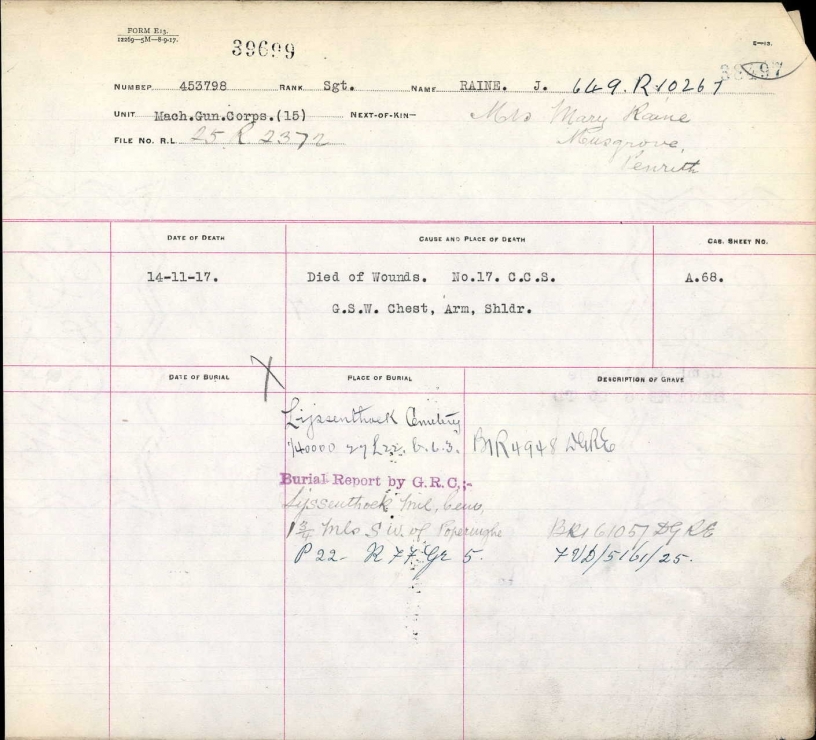 FORM E13.
12269—5M—8-9-17.
39699
E—13.
NUMBER 453798 RANK Sgt. NAME RAINE. J. 649.R.10267
UNIT Mach.Gun.Corps.(15) NEXT-OF-KIN— Mrs Mary Raine
Musgrove,
FILE No. R.L. 25 R 2372
Penrith
DATE OF DEATH CAUSE AND PLACE OF DEATH CAS. SHEET NO.
14-11-17. Died of Wounds. No.17. C.C.S. A.68.
G.S.W. Chest, Arm, Shldr.
DATE OF BURIAL PLACE OF BURIAL DESCRIPTION OF GRAVE
Lijssenthoek Cemetery
1/40000 27 L22. b. 6.3. BIR4948 DGRE
Burial Report by G.R.C;-
Lijssenthoek Mil. Cem,
1¾ Mls S W. of Poperinghe BR16105/DGRE
P 22- R 77. Gr 5. 7VD/5161/25.